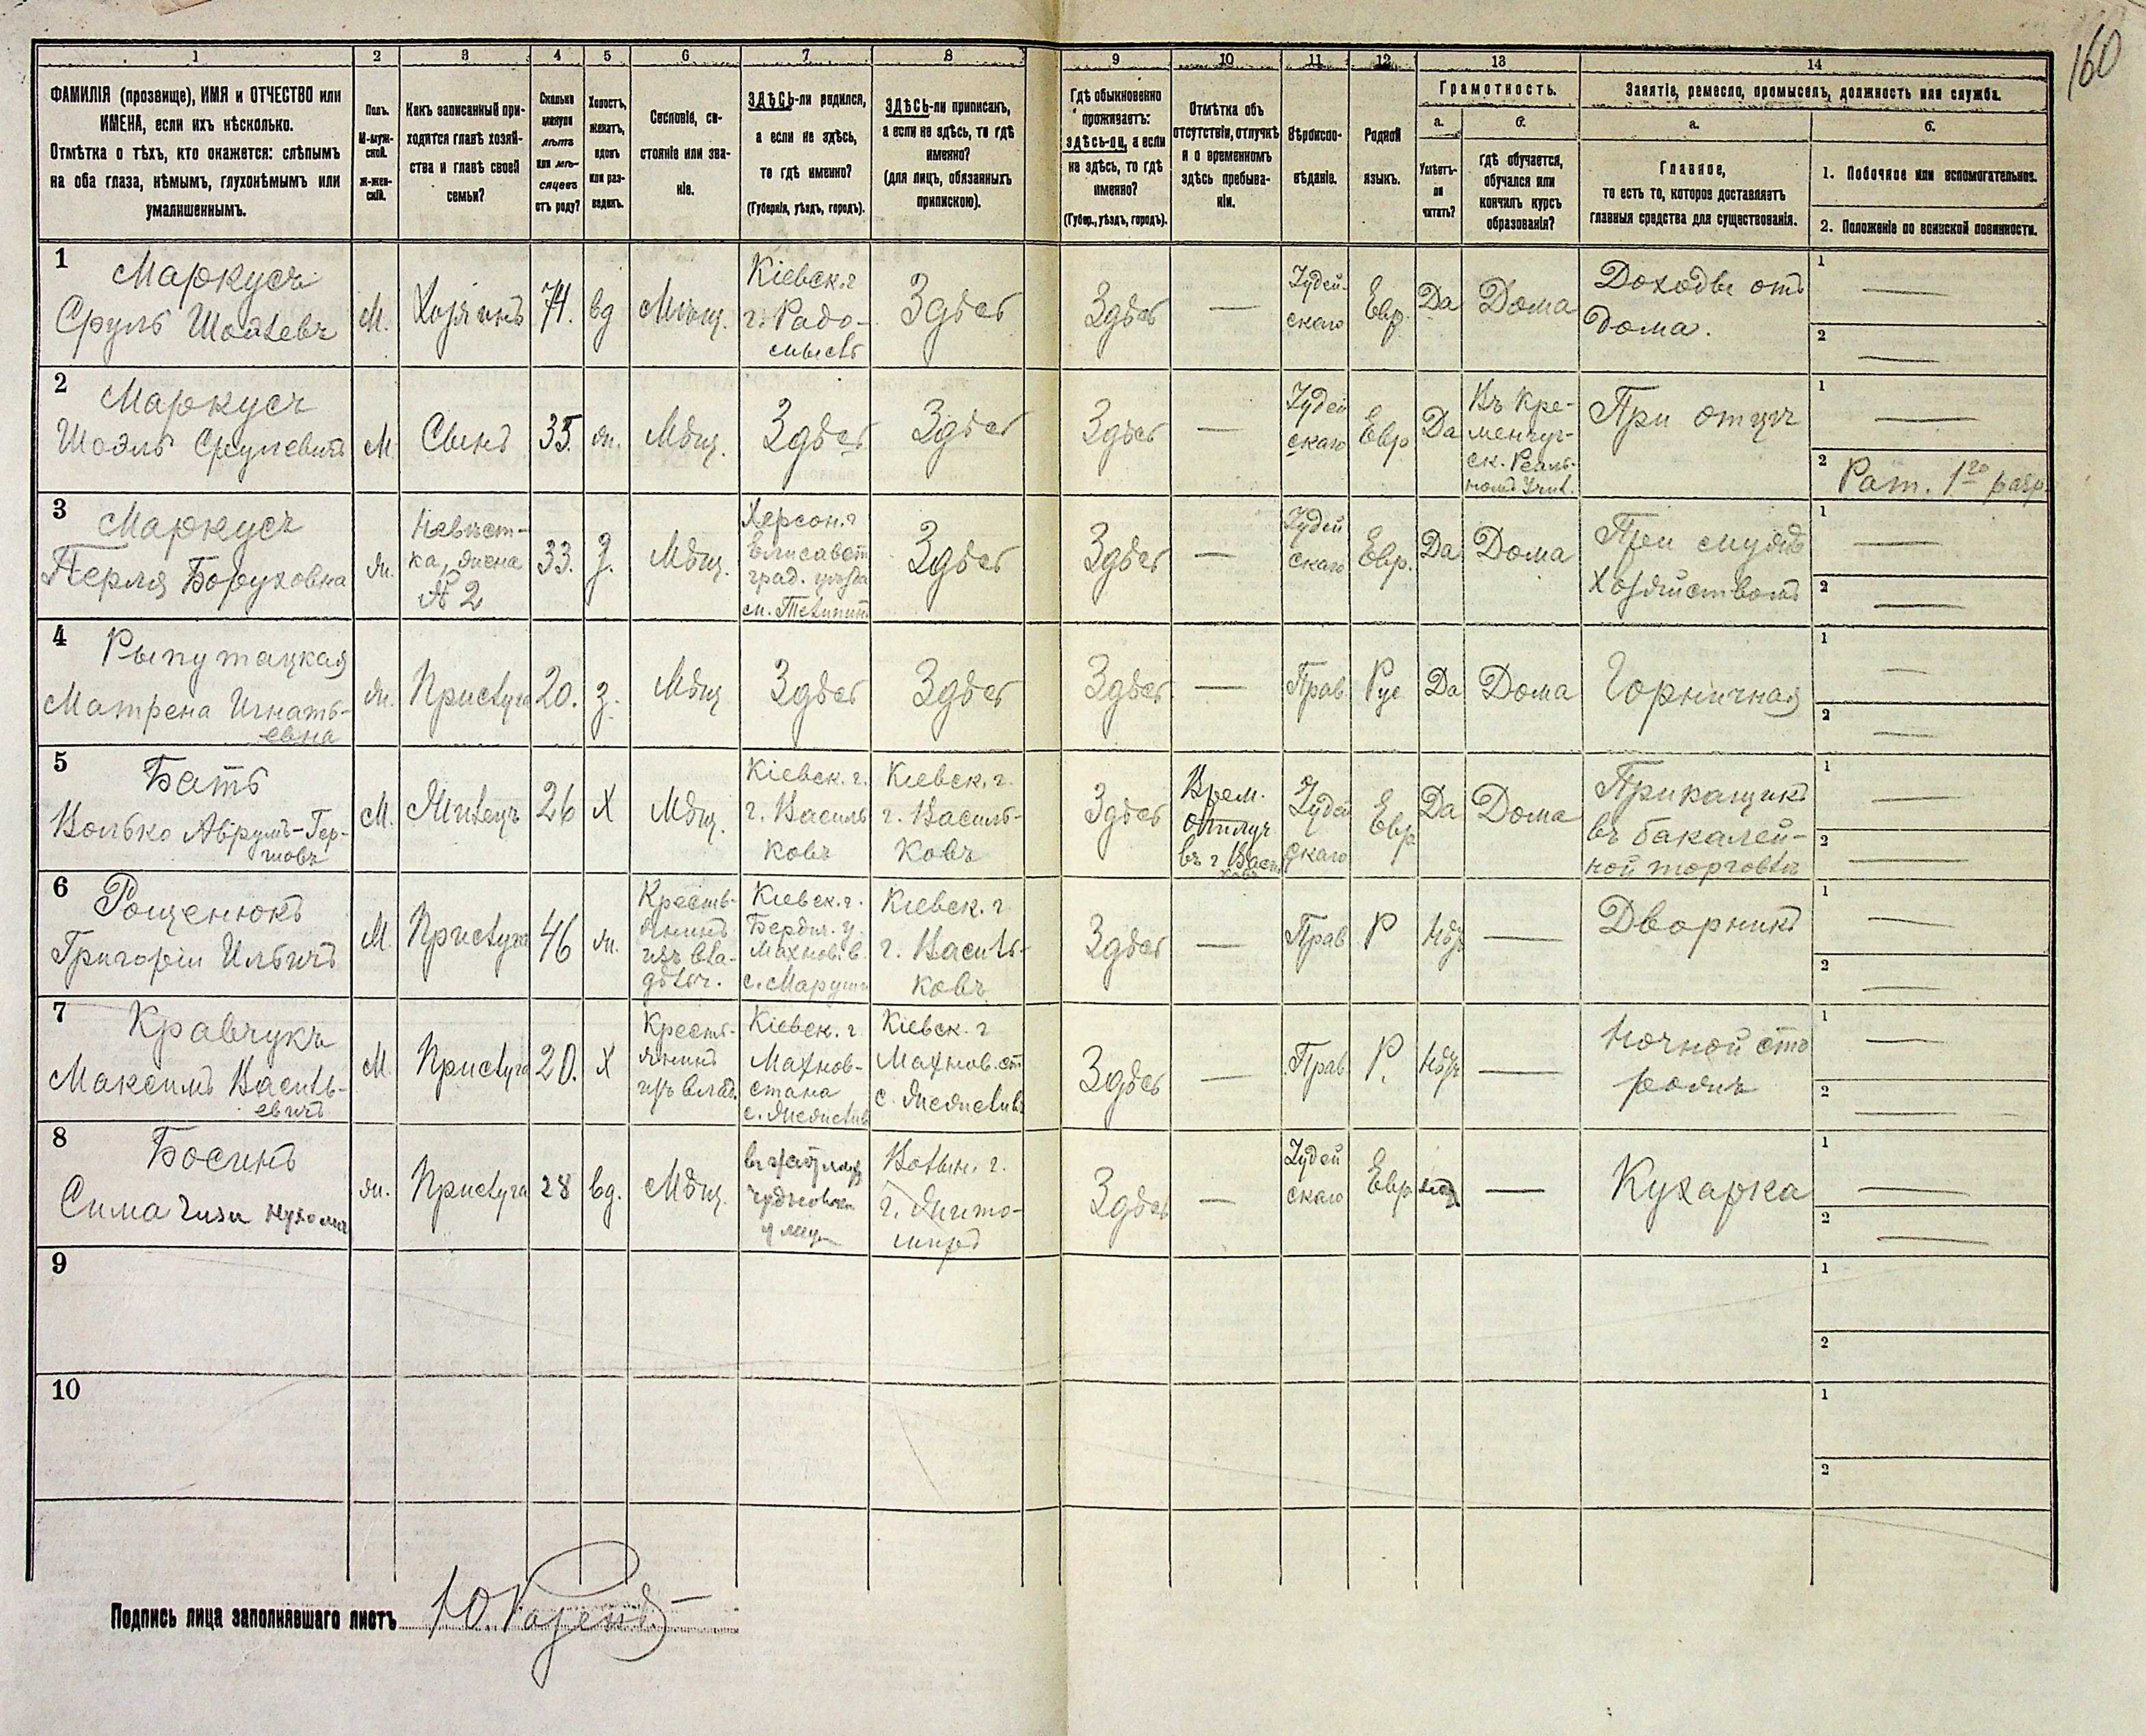 160
1
2
3
4
5
6
7
8
9
10
11
12
13
14
ФАМИЛІЯ (прозвище), ИМЯ и ОТЧЕСТВО или
ИМЕНА, если ихъ нѣсколько.
Отмѣтка о тѣхъ, кто окажется: слѣпымъ
на оба глаза, нѣмымъ, глухонѣмымъ или
умалишеннымъ.
Полъ.
М-муж-
ской.
Ж-жен-
скій.
Какъ записанный при-
ходится главѣ хозяй-
ства и главѣ своей
семьи?
Сколько
минуло
лѣтъ
или мѣ-
сяцевъ
отъ роду?
Холостъ,
женатъ,
вдовъ
или раз-
веденъ.
Сословіе, со-
стояніе или зва-
ніе.
ЗДѢСЬ-ли родился,
а если не здѣсь,
то гдѣ именно?
(Губернія, уѣздъ, городъ).
ЗДѢСЬ-ли приписанъ,
а если не здѣсь, то гдѣ
именно?
(для лицъ, обязанныхъ
припискою).
Гдѣ обыкновенно
проживаетъ:
здѣсь-ли, а если
не здѣсь, то гдѣ
именно?
(Губер., уѣздъ, городъ).
Отмѣтка объ
отсутствіи, отлучкѣ
и о временномъ
здѣсь пребыва-
ніи.
Вѣроиспо-
вѣданіе.
Родной
языкъ.
Грамотность.
а.
б.
Умѣетъ-
ли
читать?
гдѣ обучается,
обучался или
кончилъ курсъ
образованія?
Занятіе, ремесло, промыселъ, должность или служба.
а.
б.
Главное,
то есть то, которое доставляетъ
главныя средства для существованія.
1. Побочное или вспомогательное.
2. Положеніе по воинской повинности.
1
Маркусъ
Сруль Шоелевъ
М.
Хозяинъ
74.
вд
Мѣщ.
Кіевск. г
г. Радо-
мысль
Здѣсь
Здѣсь
—
Іудей-
скаго
Евр.
Да
Дома
Доходы отъ
дома.
1 —
2 —
2
Маркусъ
Шоэль Срулевичъ
М
Сынъ
35.
ж.
Мѣщ.
Здѣсь
Здѣсь
Здѣсь
—
Іудей
скаго
Евр
Да
Въ Кре-
менчуг-
ск. Реаль-
номъ Учил.
При отцѣ
1 —
2 Рат. 1го разр.
3
Маркусъ
Перля Боруховна
ж.
Невѣст-
ка, жена
№ 2
33.
З.
Мѣщ.
Херсон. г
Елисавет
град. уѣзда
Здѣсь
Здѣсь
—
Іудей
скаго
Евр.
Да
Дома
При мужѣ
Хозяйствомъ
1 —
2 —
4
Матрена Игнать-
евна
ж.
Прислуга
20.
З.
Мѣщ
Здѣсь
Здѣсь
Здѣсь
—
Прав.
Рус
Да
Дома
Горничная
1 —
2 —
5
Бать
Волько Абрумъ-Гер-
шовъ
М.
Жилецъ
26
Х
Мѣщ.
Кіевск. г.
г. Василь
ковъ
Кіевск. г.
г. Василь-
ковъ
Здѣсь
Врем.
отлуч
въ г Васи
ковъ
Іудей
скаго
Евр
Да
Дома
Прикащикъ
въ бакалей-
ной торговлѣ
1 —
2 —
6
Рощенюкъ
Григорій Ильичъ
М.
Прислуга
46
ж.
Кресть-
янинъ
изъ вла-
дѣльч.
Кіевск. г.
Бердич. у.
Махнов. в.
Кіевск. г
г. Василь-
ковъ
Здѣсь
—
Прав
Р
Нѣтъ
—
Дворникъ
1 —
2 —
7
Кравчукъ
Максимъ Василь-
евичъ
М
Прислуга
20.
Х
Кресть-
янинъ
изъ влад.
Кіевск. г
Махнов-
стана
Кіевск. г
Махнов. ст.
Здѣсь
—
Прав
Р.
Нѣтъ
—
Ночной сто
рожъ
1 —
2 —
8
Босинъ
Сима
ж.
Прислуга
28
вд.
Мѣщ.
Волын. г.
г. Жито-
миръ
Здѣсь
—
Іудей
скаго
Евр
—
Кухарка
1 —
2 —
9
1
2
10
1
2
Подпись лица заполнявшаго листъ